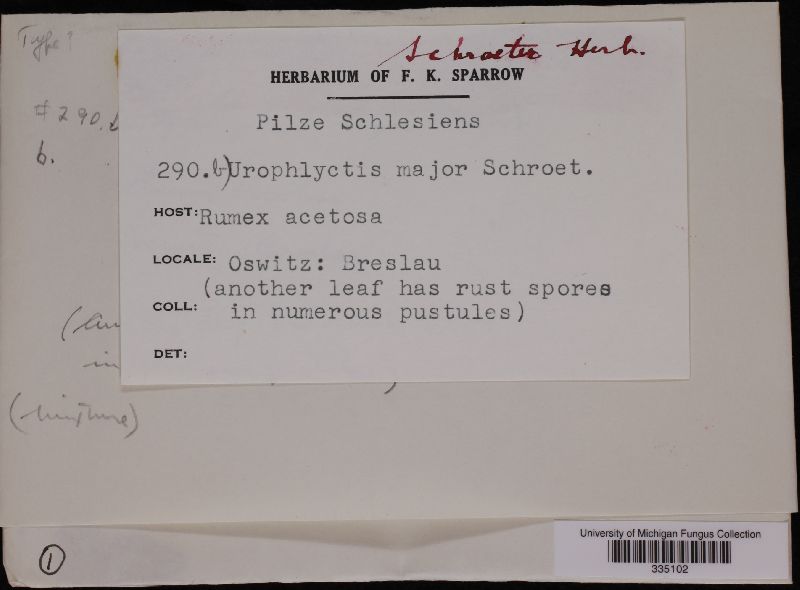 Type?
#290.b
b.
Schroeter Herb.
HERBARIUM OF F. K. SPARROW
Pilze Schlesiens
290.b)Urophlyctis major Schroet.
HOST: Rumex acetosa
LOCALE: Oswitz: Breslau
(another leaf has rust spores
COLL: in numerous pustules)
DET:
(an
in
)
(mixture)
1
University of Michigan Fungus Collection
335102